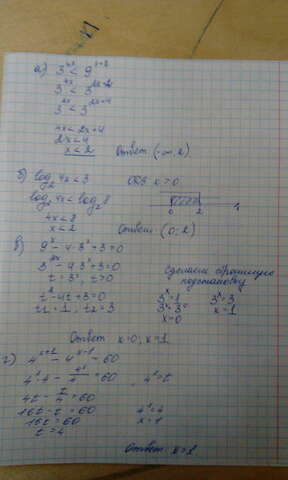 а) 3^4x < 9^x+2
3^4x < 3^2x+4
4x < 2x+4
2x < 4
x < 2 Ответ (-∞; 2)
б) log₂ 4x < 3 ОДЗ x > 0
log₂ 4x < log₂ 8
4x < 8
x < 2 Ответ (0; 2)
0 2
в) 9^x - 4·3^x + 3 = 0
3^2x - 4·3^x + 3 = 0 Сделаем обратную
t = 3^x, t > 0 подстановку
t² - 4t + 3 = 0 3^x = 1 3^x = 3
t₁ = 1, t₂ = 3 3^x = 3^0 x = 1
x = 0
Ответ x = 0; x = 1
г) 4^x+1 - 4^x-1 = 60
4^x·4 - 4^x/4 = 60, 4^x = t
4t - t/4 = 60
16t - t = 60 4^x = 4
16t = 60 x = 1
t = 4
Ответ x = 1